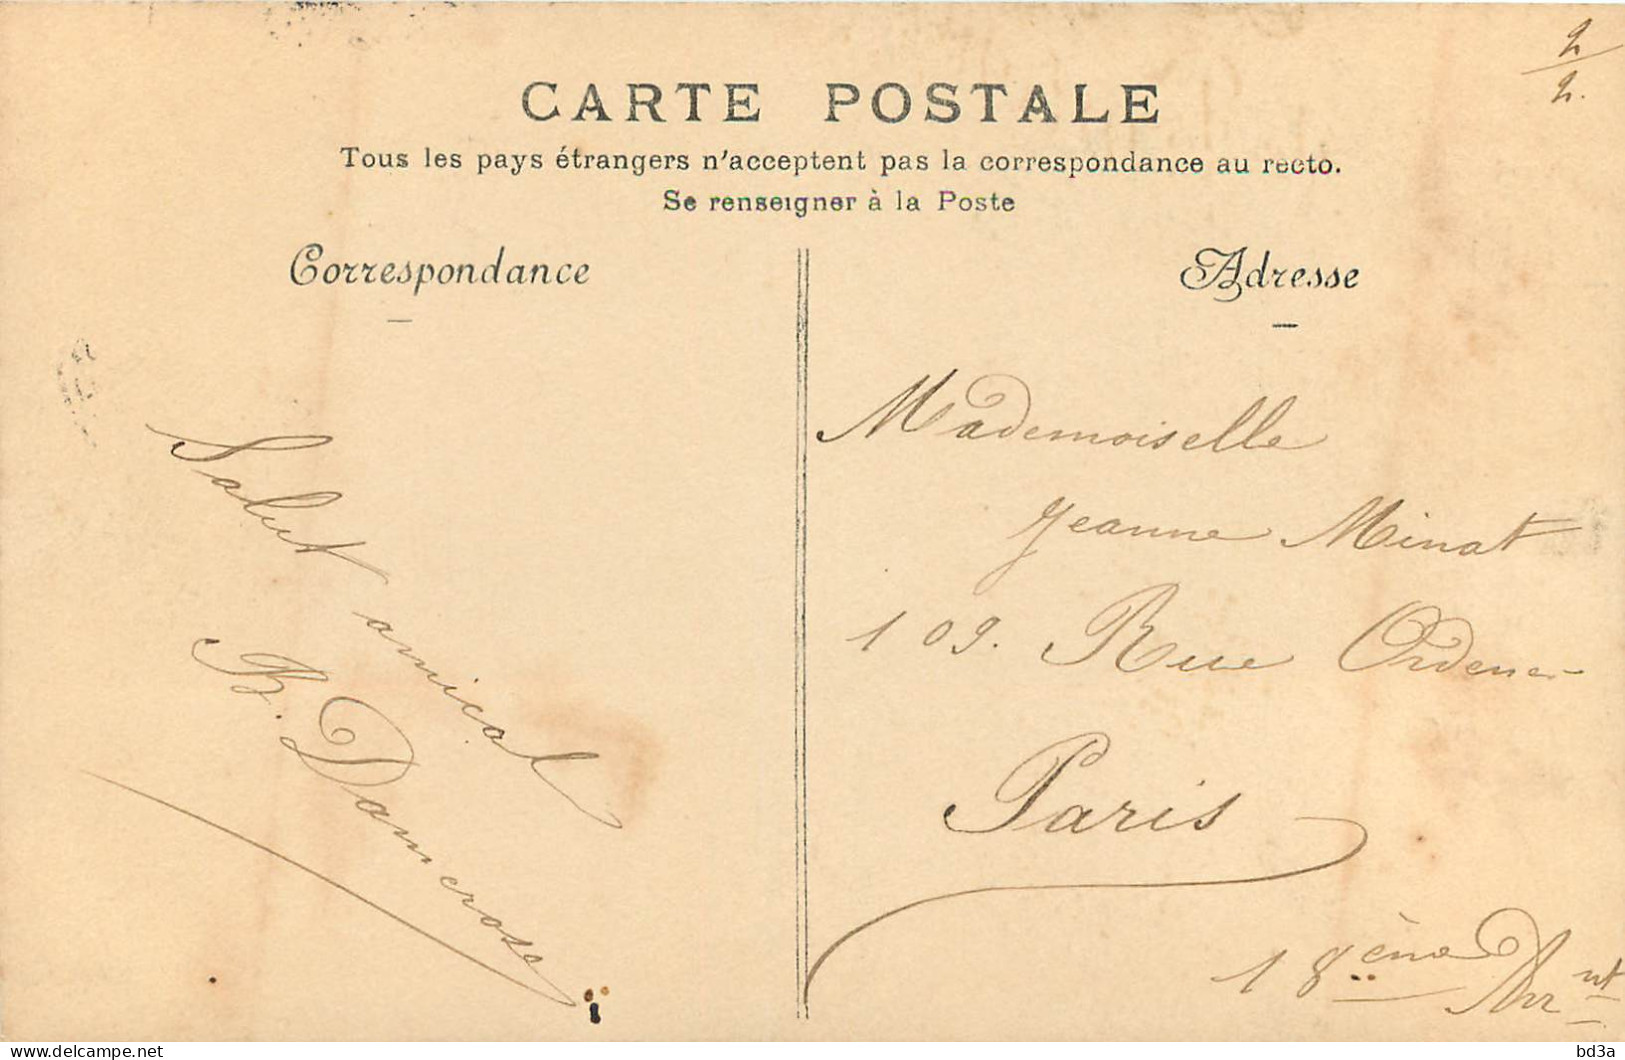 2/2.
CARTE POSTALE
Tous les pays étrangers n'acceptent pas la correspondance au recto.
Se renseigner à la Poste
Correspondance
Salut amical
B. Damerose
Adresse
Mademoiselle
Jeanne Minat
109. Rue Ordener
Paris
18ème Arrnt
delcampe.net
bd3a